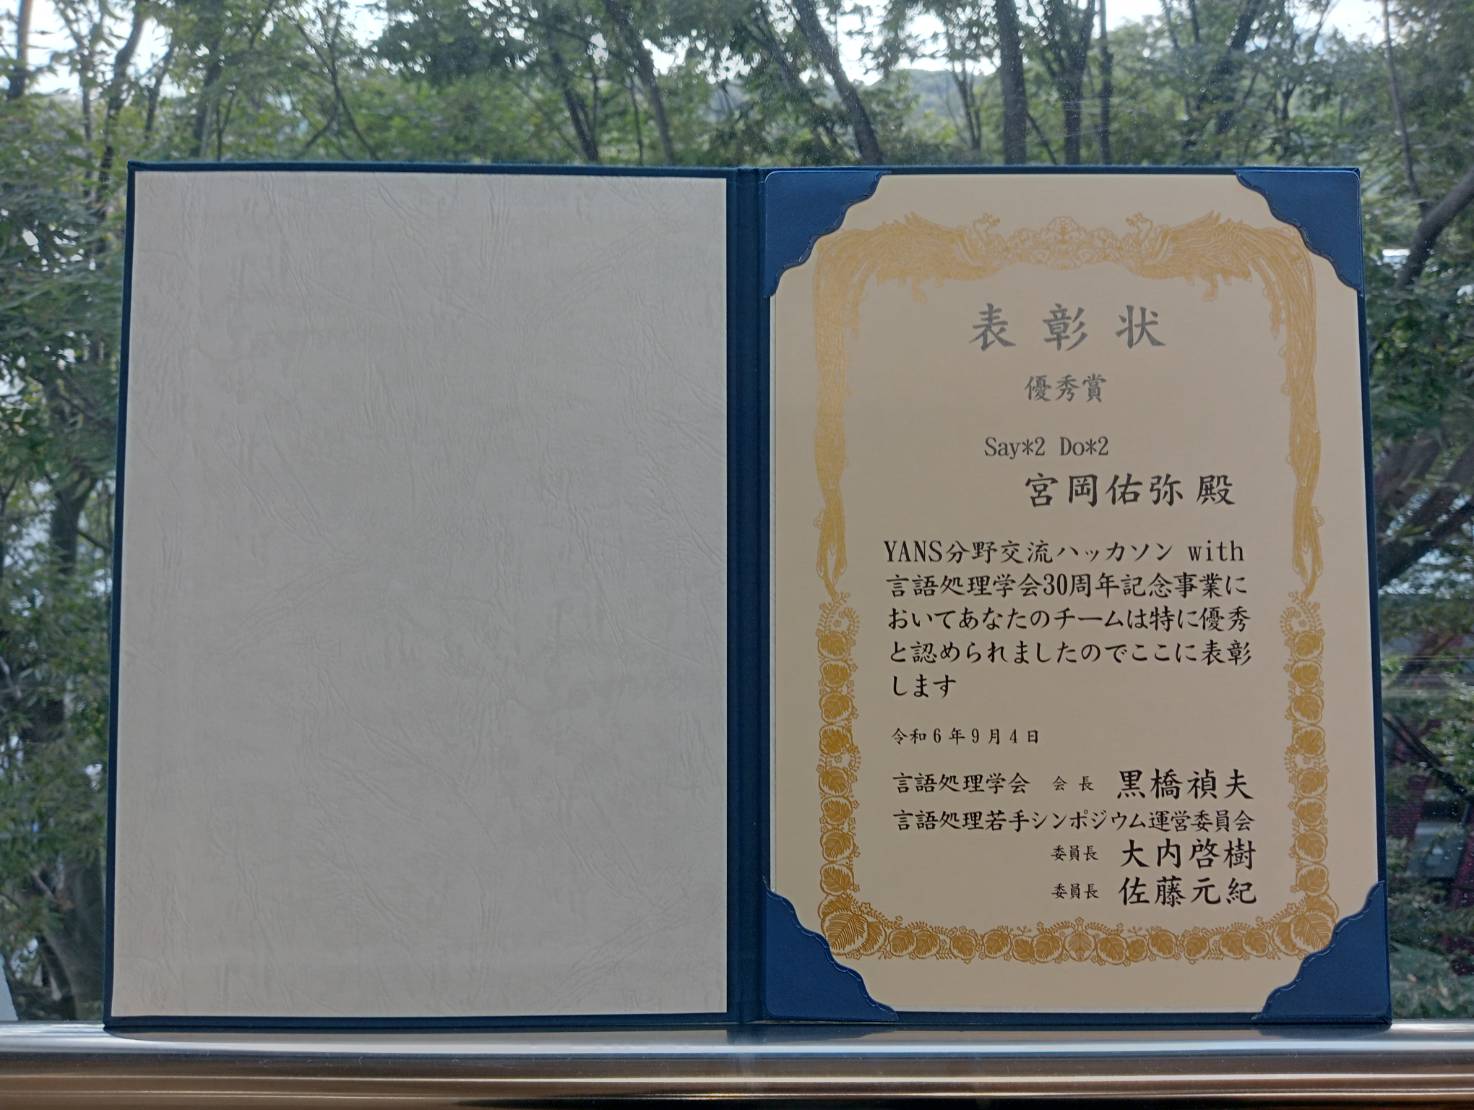 表彰状
優秀賞
Say*2 Do*2
宮岡佑弥 殿
YANS分野交流ハッカソン with
言語処理学会30周年記念事業に
おいてあなたのチームは特に優秀
と認められましたのでここに表彰
します
令和6年9月4日
言語処理学会 会長 黒橋禎夫
言語処理若手シンポジウム運営委員会
委員長 大内啓樹
委員長 佐藤元紀